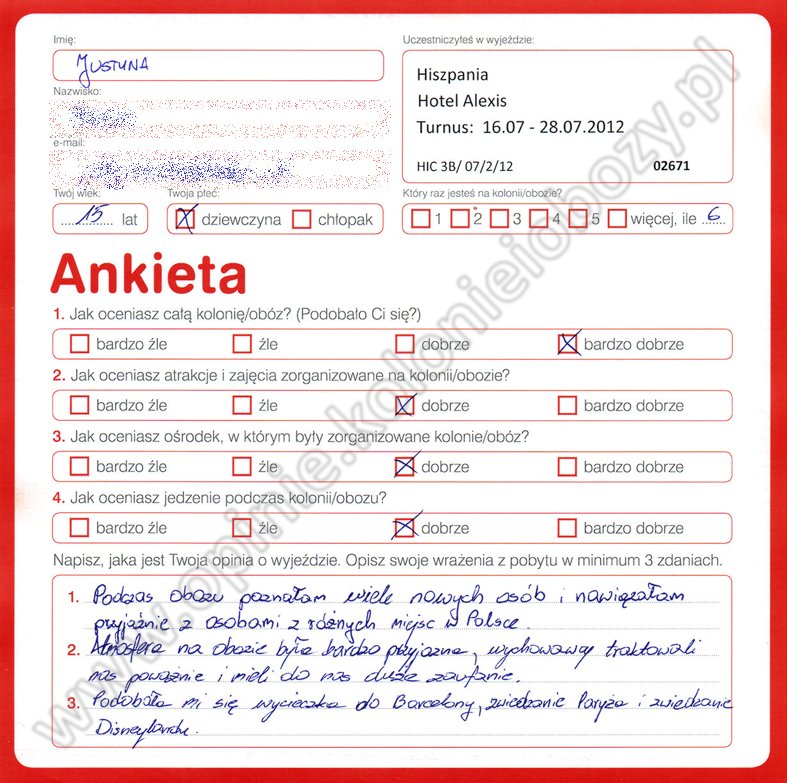 Imię:
Justyna
Uczestniczyłeś w wyjeździe:
Hiszpania
Hotel Alexis
Turnus: 16.07 - 28.07.2012
HIC 3B/ 07/2/12 02671
Nazwisko:
e-mail:
Twój wiek:
15 lat
Twoja płeć:
dziewczyna chłopak
Który raz jesteś na kolonii/obozie?
1 2 3 4 5 więcej, ile 6
Ankieta
1. Jak oceniasz całą kolonię/obóz? (Podobało Ci się?)
bardzo źle źle dobrze bardzo dobrze
2. Jak oceniasz atrakcje i zajęcia zorganizowane na kolonii/obozie?
bardzo źle źle dobrze bardzo dobrze
3. Jak oceniasz ośrodek, w którym były zorganizowane kolonie/obóz?
bardzo źle źle dobrze bardzo dobrze
4. Jak oceniasz jedzenie podczas kolonii/obozu?
bardzo źle źle dobrze bardzo dobrze
Napisz, jaka jest Twoja opinia o wyjeździe. Opisz swoje wrażenia z pobytu w minimum 3 zdaniach.
1. Podczas obozu poznałam wiele nowych osób i nawiązałam
przyjaźnie z osobami z różnych miejsc w Polsce.
2. Atmosfera na obozie była bardzo przyjazna, wychowawcy traktowali
nas poważnie i mieli do nas duże zaufanie.
3. Podobała mi się wycieczka do Barcelony, zwiedzanie Paryża i zwiedzanie
Disneylandu.
www.opinie.kolonieiobozy.pl